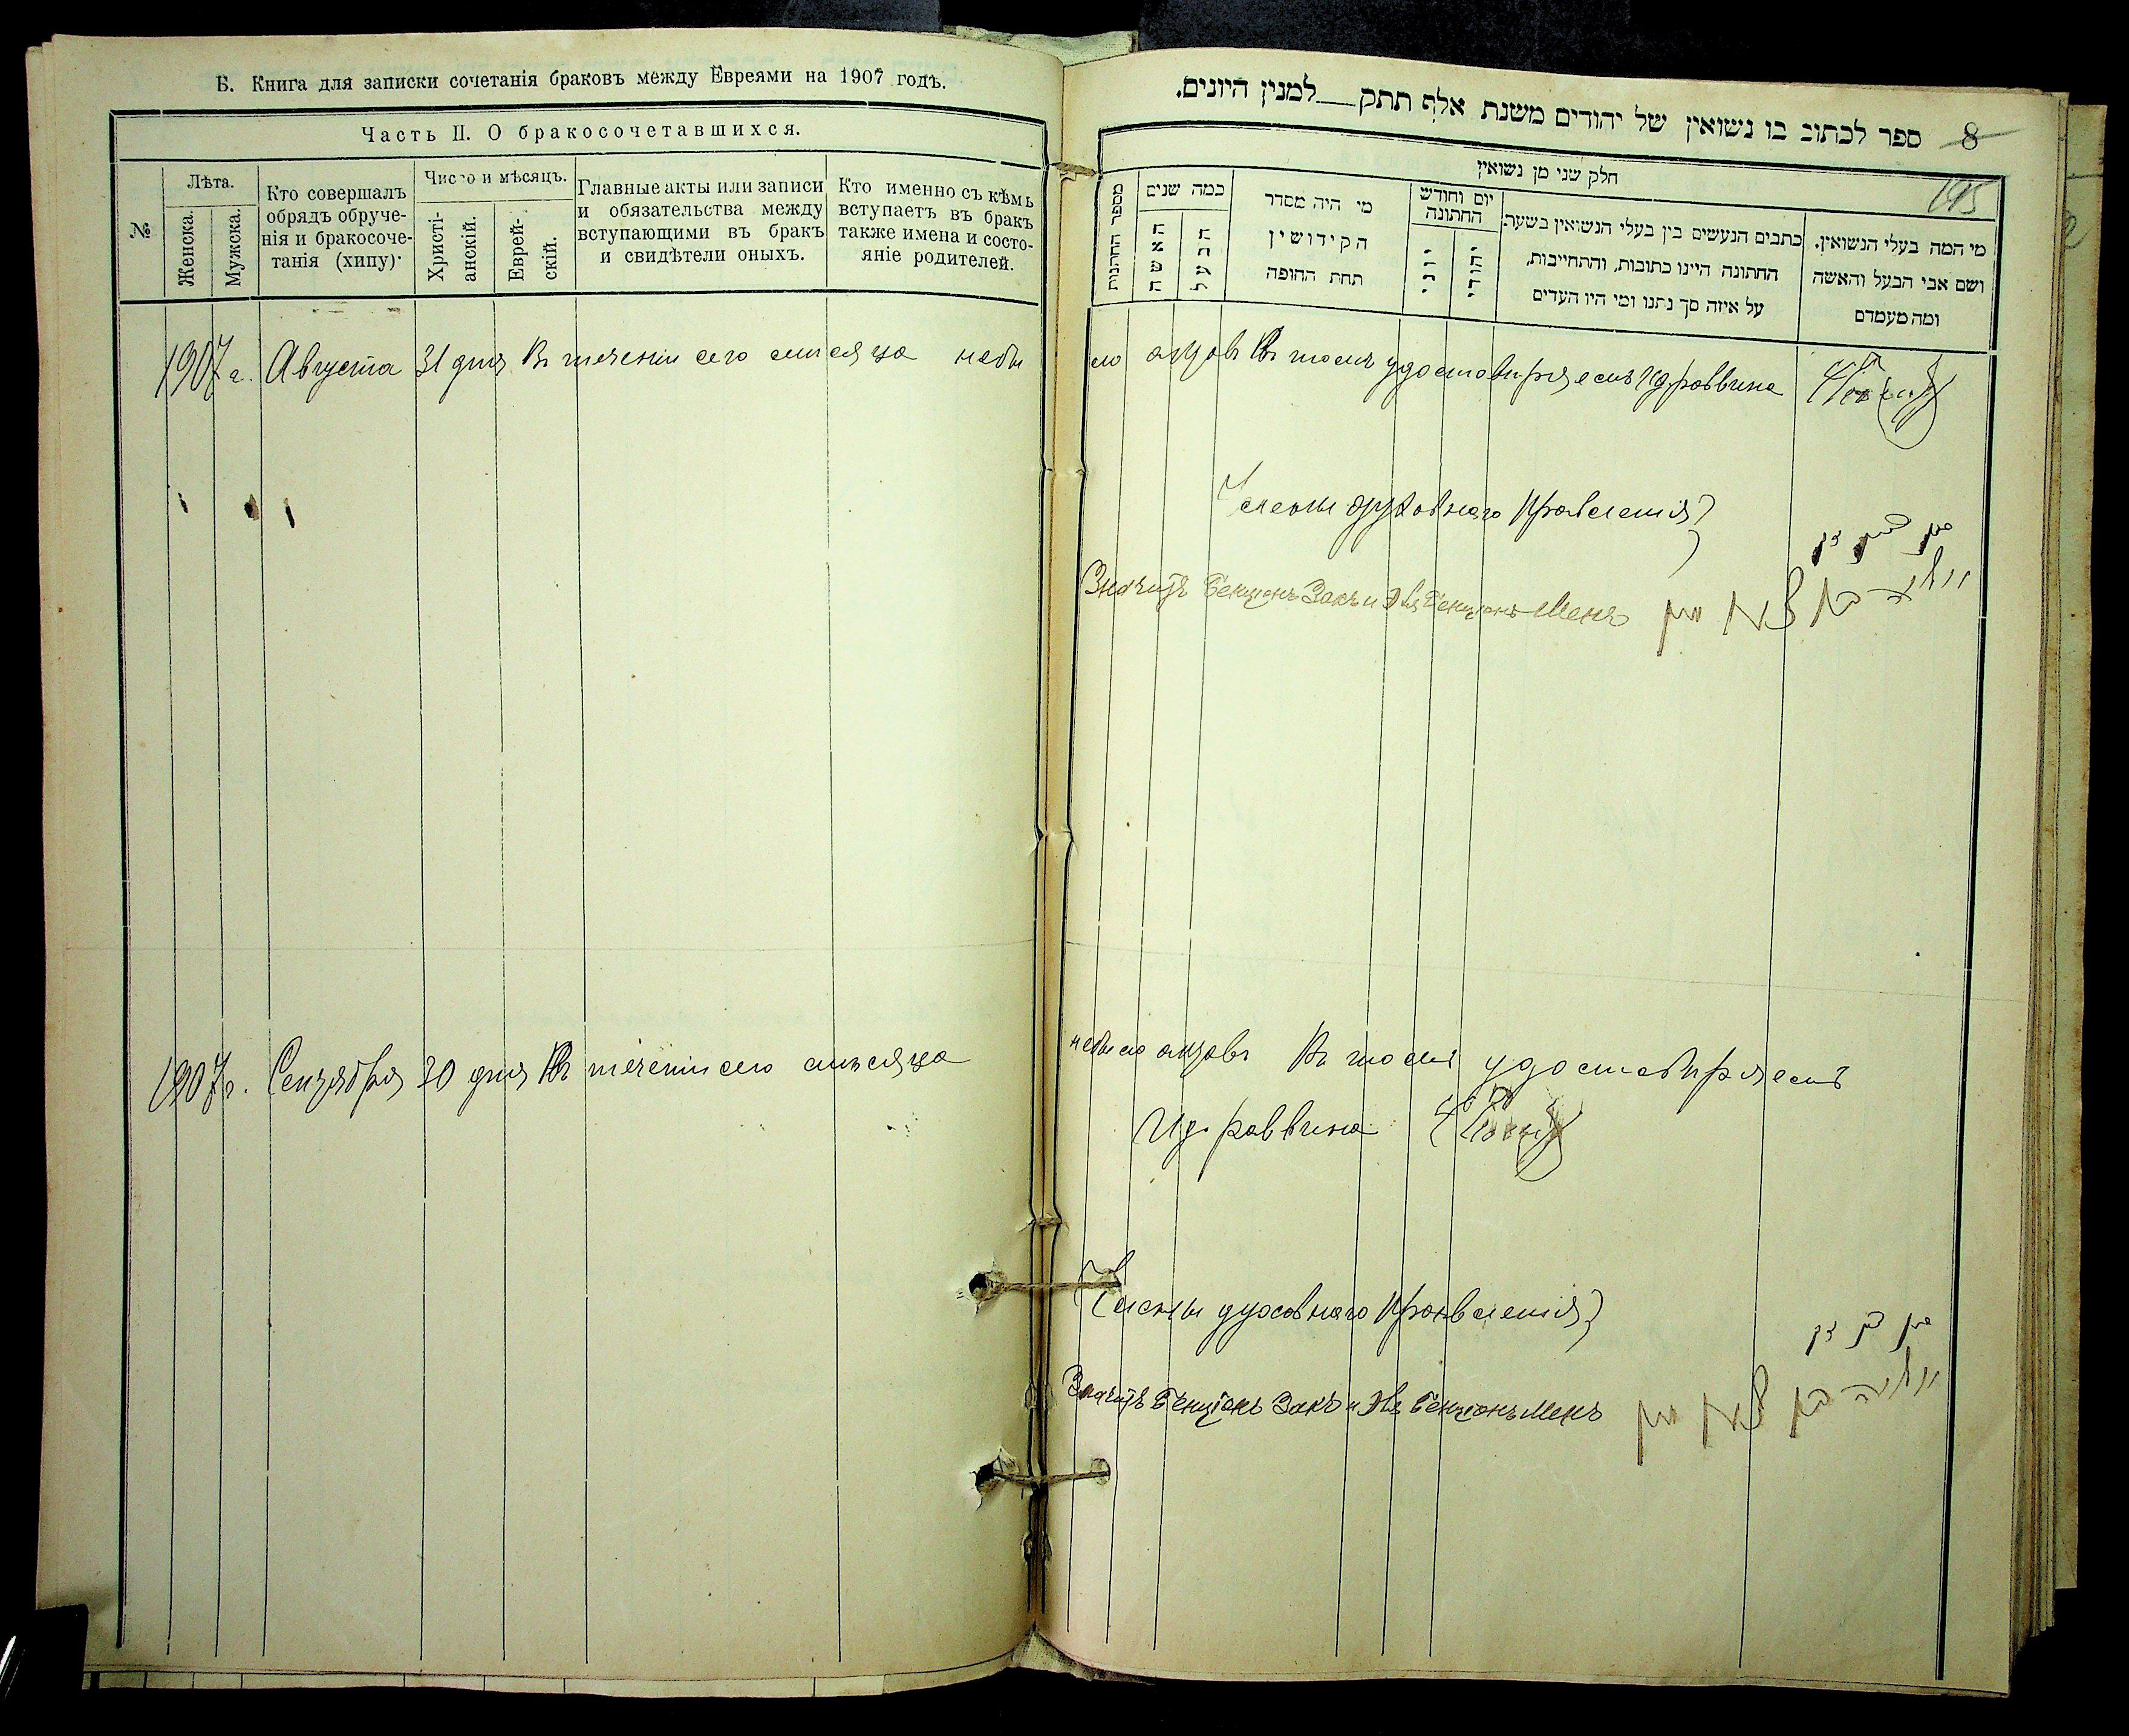 Б. Книга для записки сочетанія браковъ между Евреями на 1907 годъ.
Часть II. О бракосочетавшихся.
№
Лѣта.
Женска.
Мужска.
Кто совершалъ
обрядъ обруче-
нія и бракосоче-
танія (хипу).
Число и мѣсяцъ.
Христі-
анскій.
Еврей-
скій.
Главные акты или записи
и обязательства между
вступающими въ бракъ
и свидѣтели оныхъ.
Кто именно съ кѣмъ
вступаетъ въ бракъ
также имена и состо-
яніе родителей.
8 ספר לכתוב בו נשואין של יהודים משנת אלף תתק— למנין היונים.
195
חלק שני מן נשואין
מספר החתונות
כמה שנים
האשה
הבעל
מי היה מסדר
הקידושין
תחת החופה
יום וחודש
החתונה
יוני
יהודי
כתבים הנעשים בין בעלי הנשואין בשעת
החתונה היינו כתובות, והתחייבות,
על איזה סך נתנו ומי היו העדים
מי המה בעלי הנשואין.
ושם אבי הבעל והאשה
ומה מעמדם
1907 г. Августа 31 дня Въ теченіи сего мѣсяца небы
ло актовъ Въ томъ удостовѣряемъ Ид раввина
Члены духовнаго Правленія
Значитъ Бенціонъ Закъ и Эля Бенціонъ Менъ
1907 г. Сентября 30 дня Въ теченіи сего мѣсяца
небыло актовъ Въ томъ удостовѣряемъ
Ид. раввина
Члены духовнаго Правленія
Значитъ Бенціонъ Закъ и Эля Бенціонъ Менъ